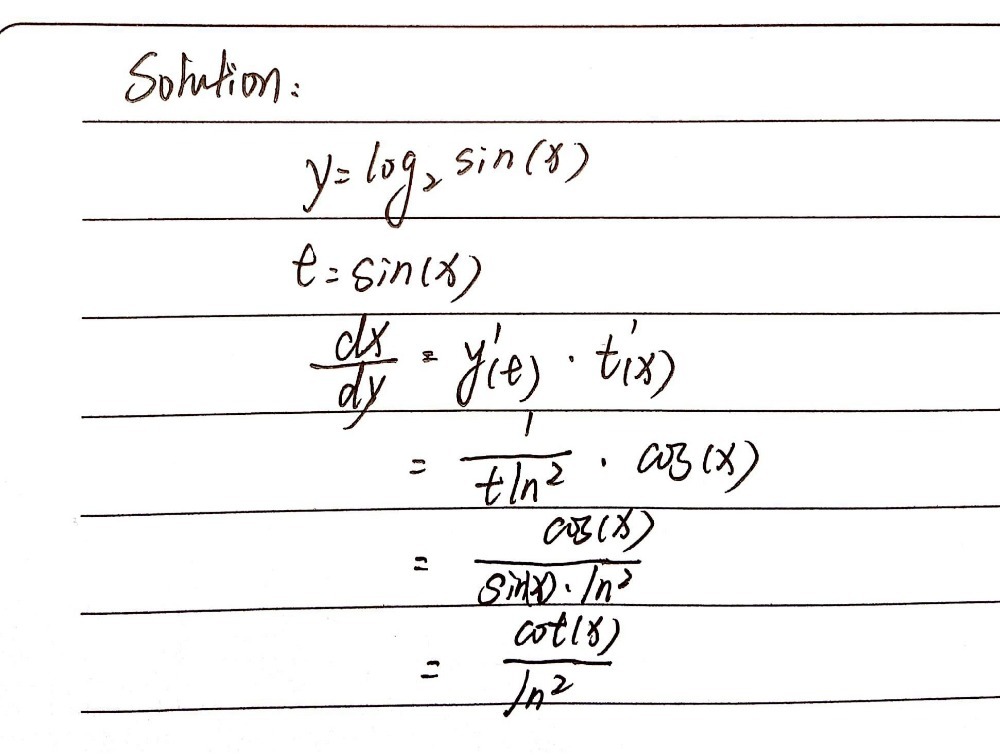 Solution:
y = log₂ sin(x)
t = sin(x)
dx/dy = y'(t) · t'(x)
= 1/(t ln2) · cos(x)
= cos(x)/(sin(x) · ln2)
= cot(x)/ln2